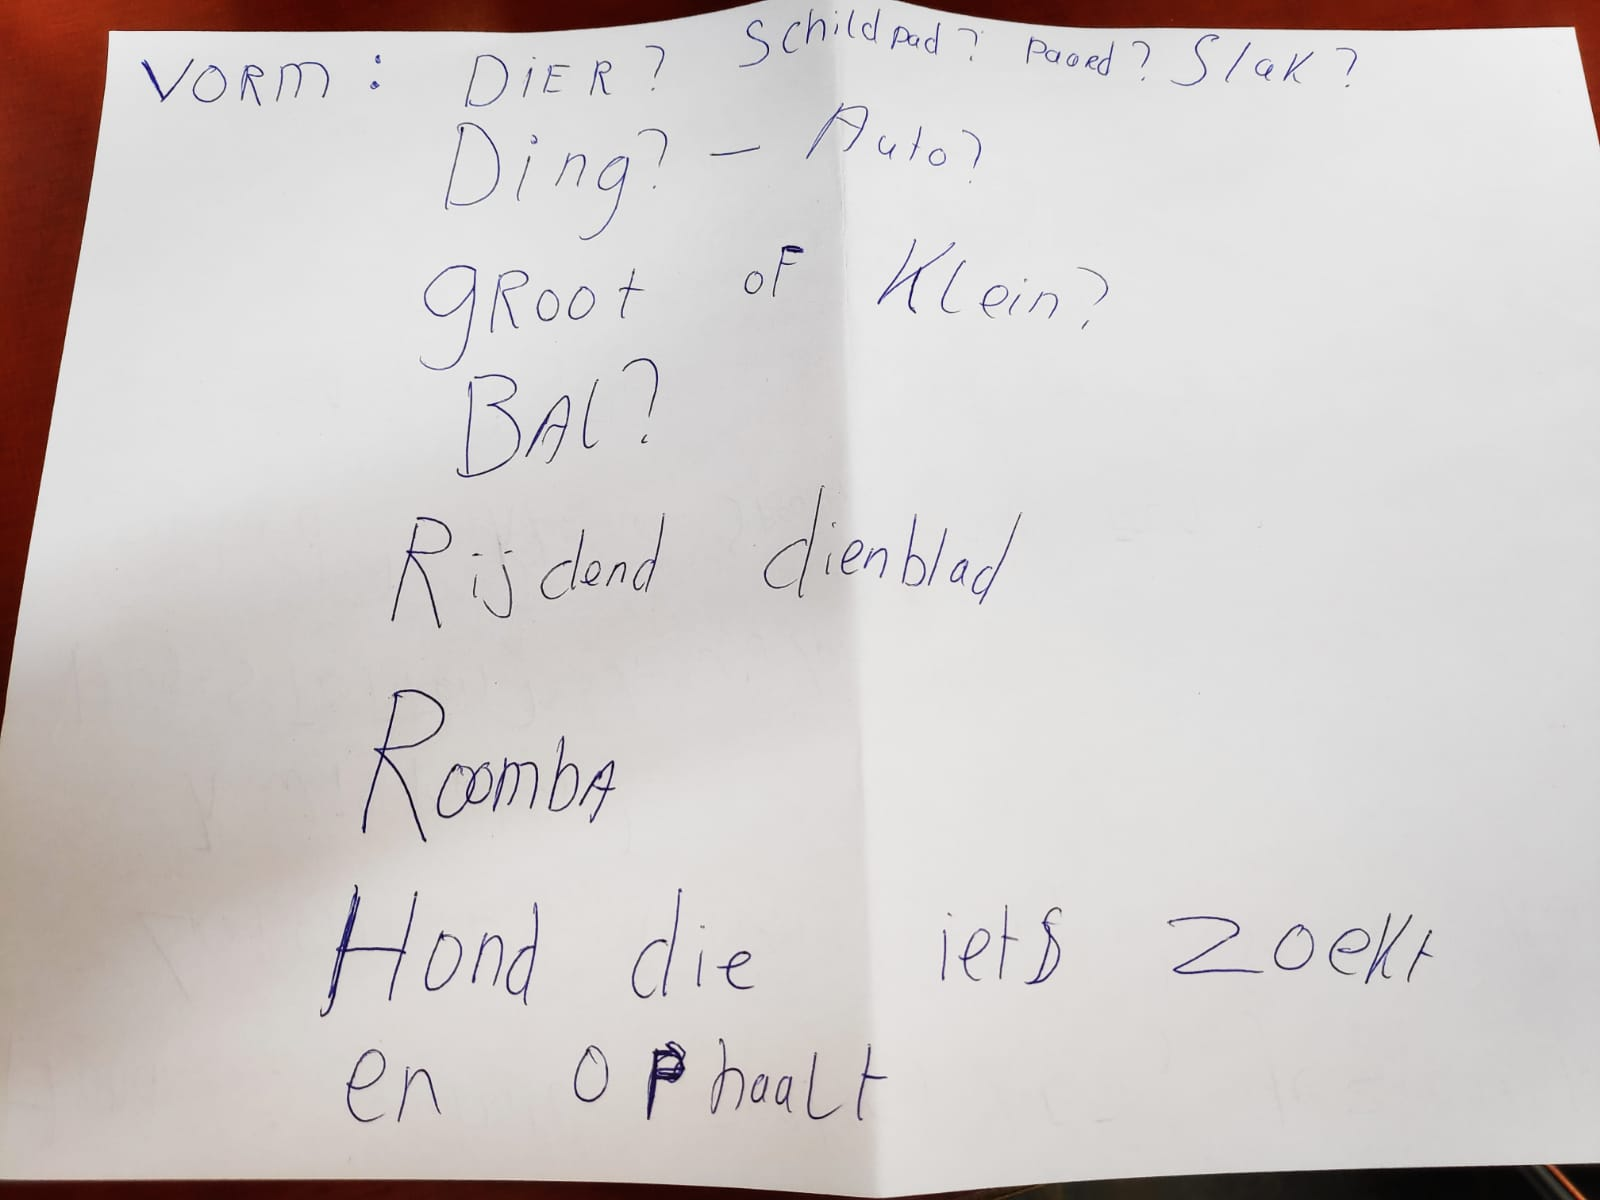 VORM: DIER? Schildpad? paard? Slak?
Ding? - Auto?
gROOt oF KLein?
BAL?
Rijdend dienblad
RoombA
Hond die iets zoekt
en oPhaaLt